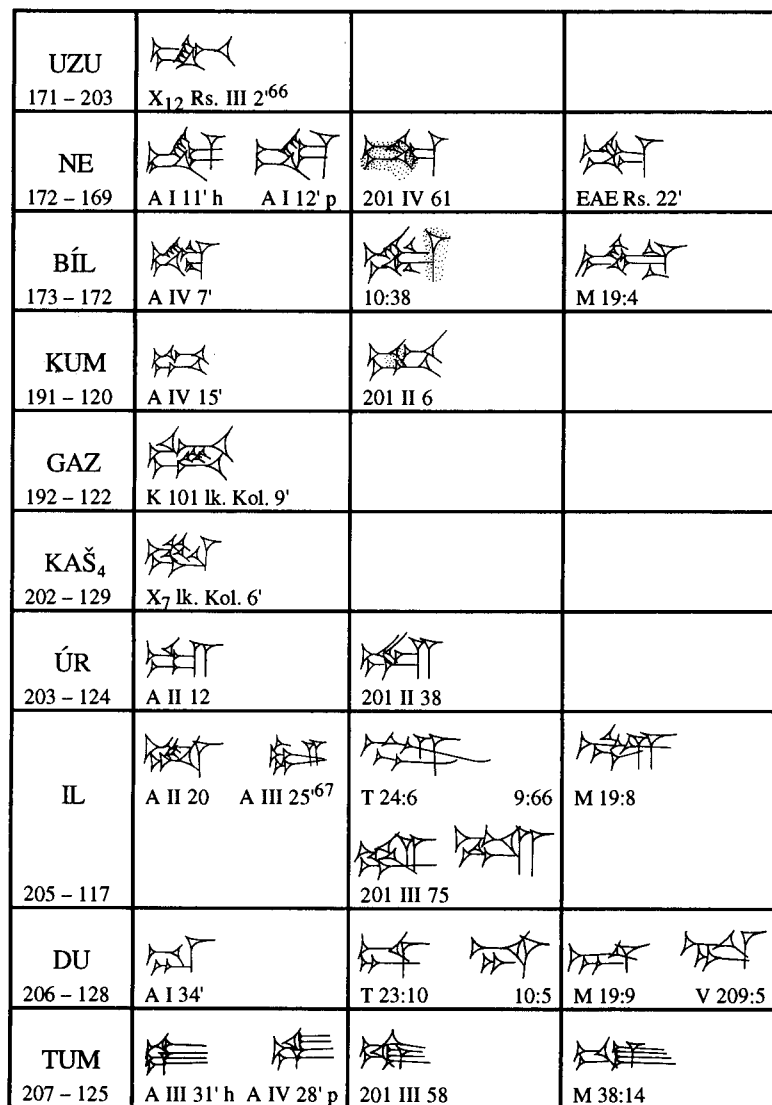 UZU
171 – 203
X₁₂ Rs. III 2'⁶⁶
NE
172 – 169
A I 11' h A I 12' p
201 IV 61
EAE Rs. 22'
BÍL
173 – 172
A IV 7'
10:38
M 19:4
KUM
191 – 120
A IV 15'
201 II 6
GAZ
192 – 122
K 101 lk. Kol. 9'
KAŠ₄
202 – 129
X₇ lk. Kol. 6'
ÚR
203 – 124
A II 12
201 II 38
IL
205 – 117
A II 20 A III 25'⁶⁷
T 24:6 9:66
201 III 75
M 19:8
DU
206 – 128
A I 34'
T 23:10 10:5
M 19:9 V 209:5
TUM
207 – 125
A III 31' h A IV 28' p
201 III 58
M 38:14